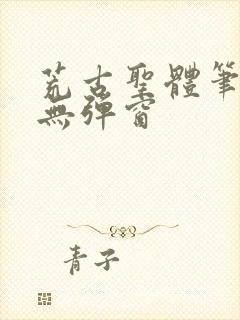 荒古聖體筆
無彈窗
青子